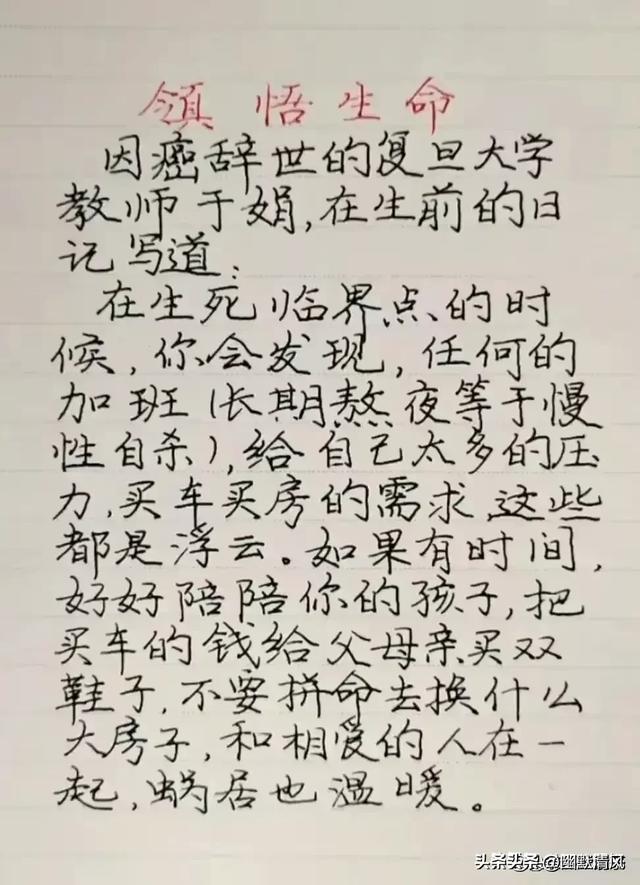 领悟生命
因癌辞世的复旦大学
教师于娟,在生前的日
记写道:
在生死临界点的时
候,你会发现,任何的
加班(长期熬夜等于慢
性自杀),给自己太多的压
力,买车买房的需求,这些
都是浮云。如果有时间,
好好陪陪你的孩子,把
买车的钱给父母亲买双
鞋子,不要拼命去换什么
大房子,和相爱的人在一
起,蜗居也温暖。
头条头条@幽默清风